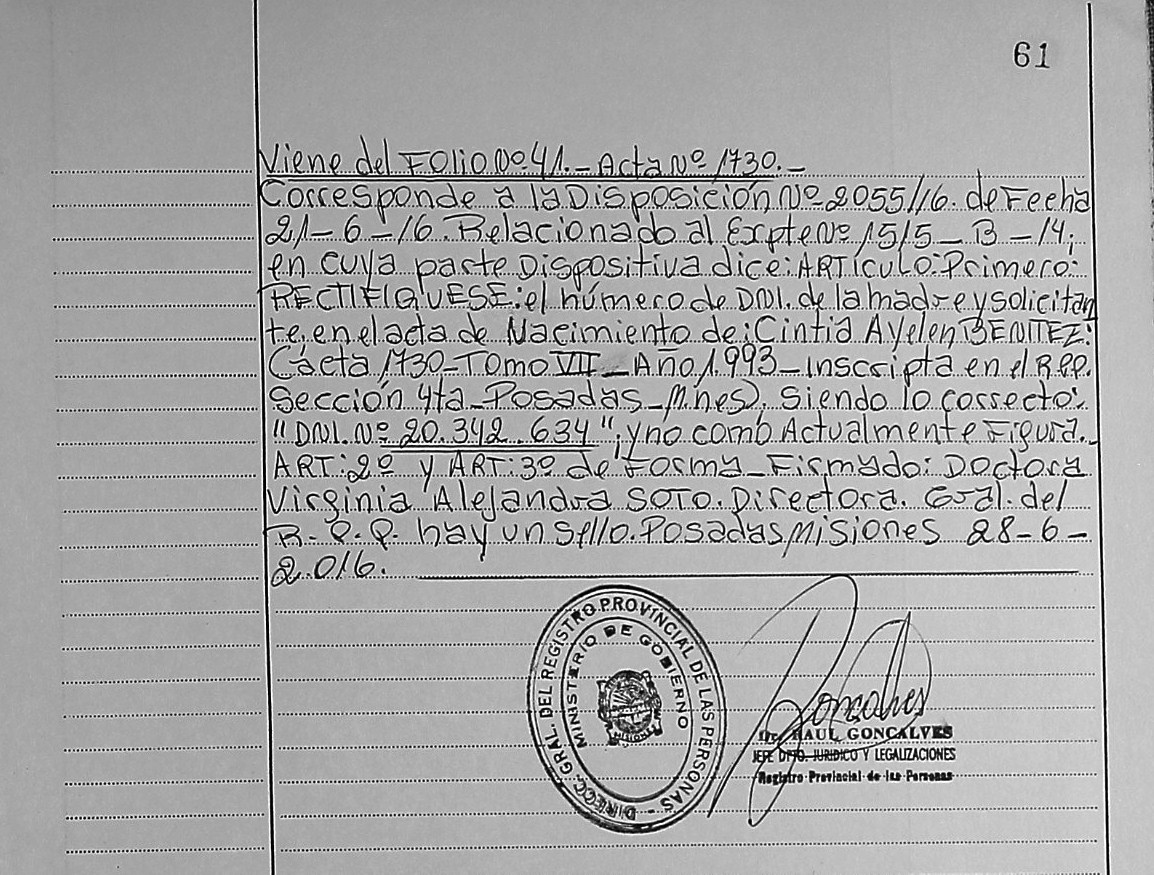 61
Viene del Folio Nº 41.- Acta Nº 1730.-
Corresponde a la Disposición Nº 2055/16. de Fecha
21-6-16. Relacionado al Expte Nº 1515-B-14;
en cuya parte Dispositiva dice: ARTICULO: Primero:
RECTIFIQUESE: el número de DNI. de la madre y solicitan
te, en el acta de Nacimiento de: Cintia Ayelen BENITEZ:
Cácta 1730-Tomo VII-Año 1.993-Inscripta en el R.P.P.
Sección 4ta-Posadas-Mnes), siendo lo correcto:
"DNI. Nº 20.342.634"; y no como Actualmente Figura.-
ART: 2º y ART: 3º de Forma-Firmado: Doctora
Virginia Alejandra SOTO. Directora. Gral. del
R.P.P. hay un sello. Posadas Misiones 28-6-
2.016.
DIRECC. GRAL. DEL REGISTRO PROVINCIAL DE LAS PERSONAS
MINISTERIO DE GOBIERNO
MISIONES
Goncalves
Dr. RAUL GONCALVES
JEFE DPTO. JURIDICO Y LEGALIZACIONES
Registro Provincial de las Personas